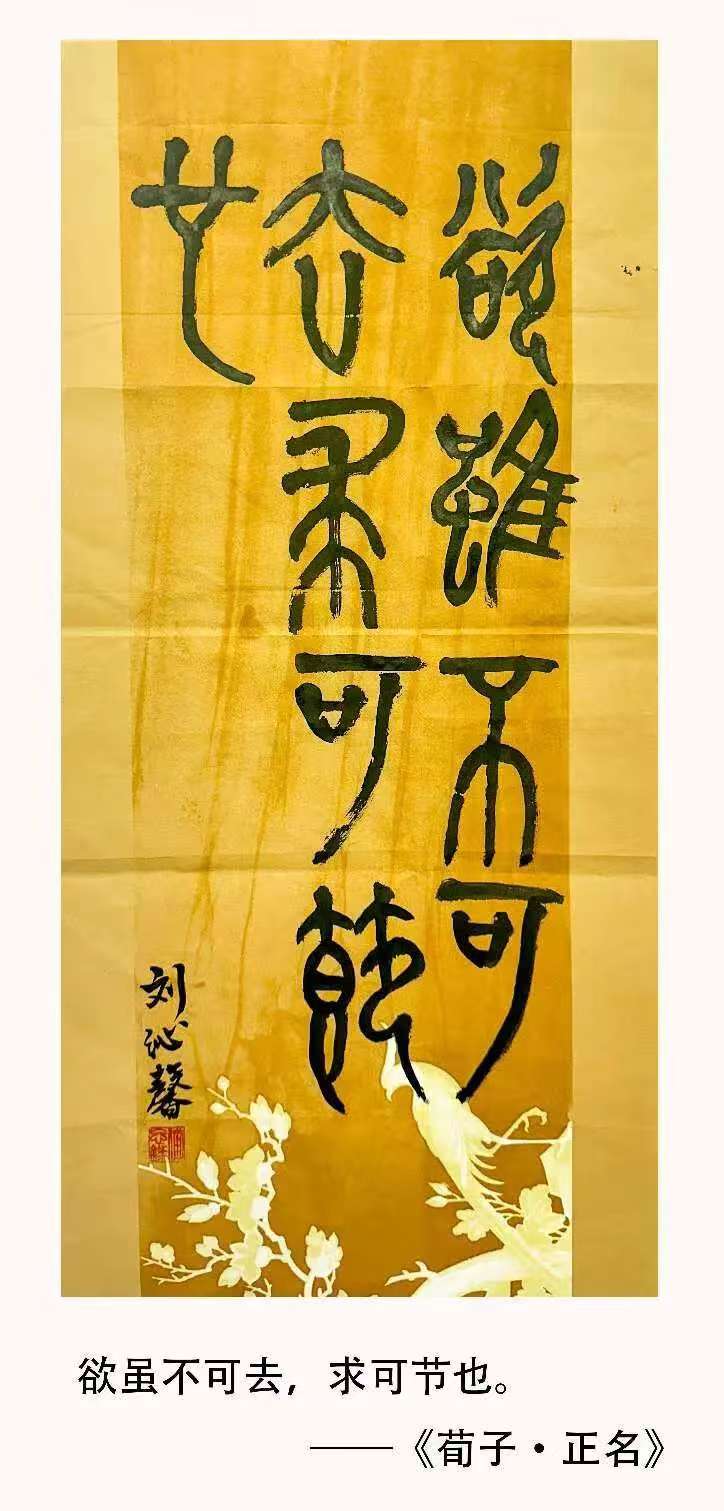 欲雖不可
去求可節
也
刘沁馨
欲虽不可去，求可节也。
——《荀子·正名》